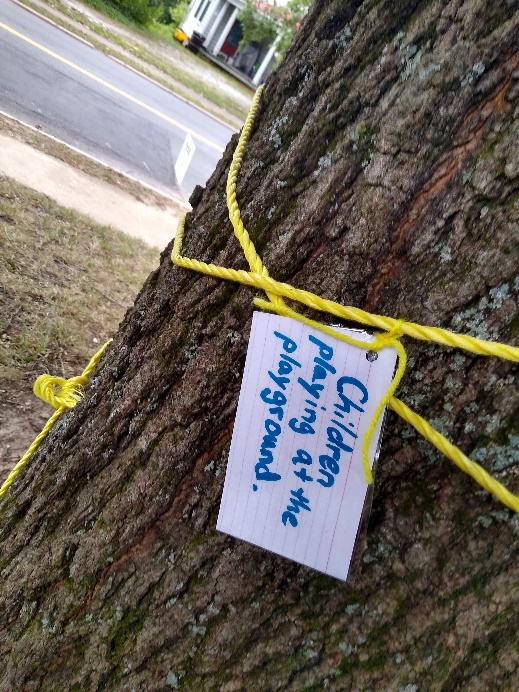 Children
playing at the
playground.